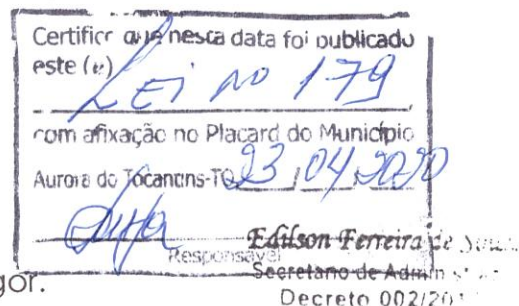 Certifico que nesta data foi publicado
este (e)
Lei nº 179
com afixação no Placard do Município
Aurora do Tocantins-TO 23 / 04 / 2020
Responsável
Edilson Ferreira de
Secretario de Admin
Decreto 002/20
gor.